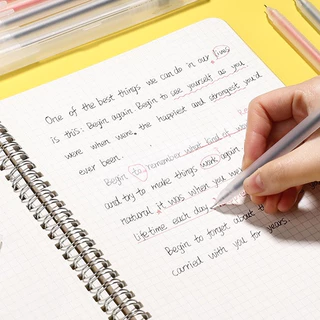 One of the best things we can do in our lives
is this: Begin again Begin to see yourself as you
were when were the happiest and strongest you'd
ever been.
Begin to remember what kind of
and try to make things work again
Natural it was when you
lifetime each day
Begin to forget about
carried with you for years.